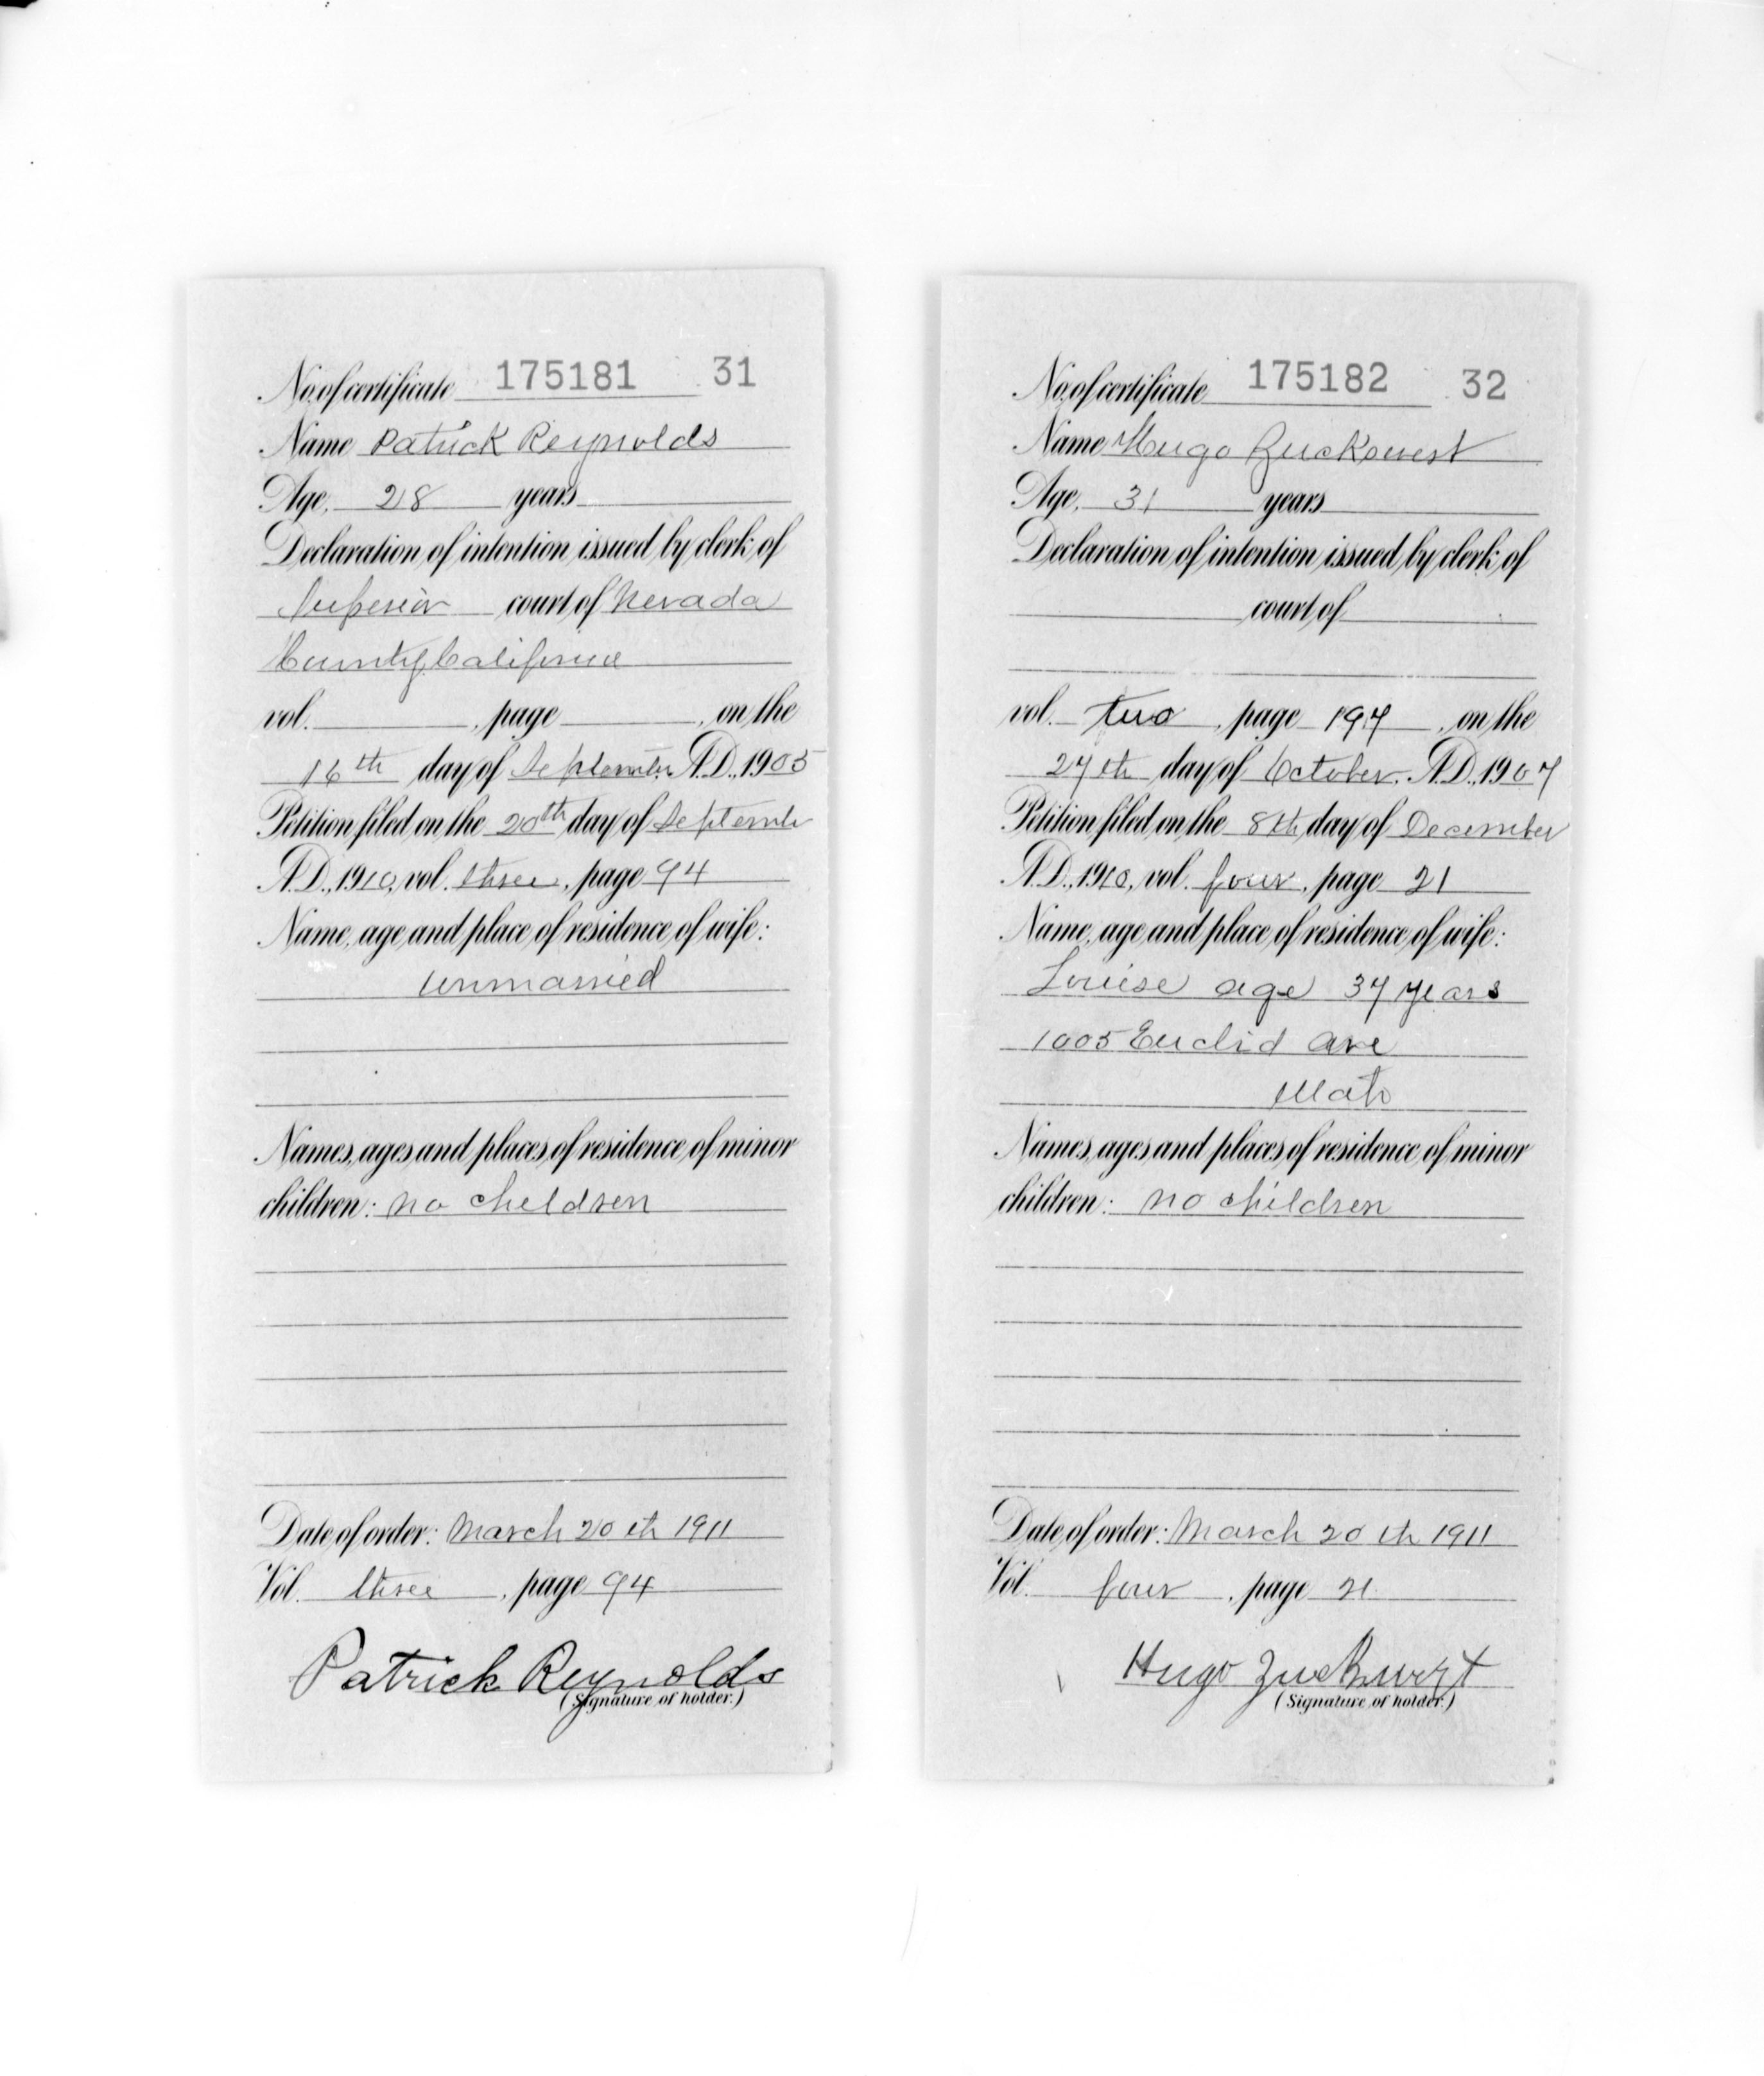 No. of certificate 175181 31
Name Patrick Reynolds
Age, 28 years
Declaration of intention issued by clerk of
Superior court of Nevada
County California
vol. , page , on the
16th day of September A.D., 1905
Petition filed on the 20th day of Septembr
A.D., 1910, vol. three, page 94
Name, age and place of residence of wife:
unmarried
Names, ages and places of residence of minor
children: no children
Date of order: March 20th 1911
Vol. three, page 94
Patrick Reynolds
(Signature of holder.)
No. of certificate 175182 32
Name Hugo Zuckswest
Age, 31 years
Declaration of intention issued by clerk of
court of
vol. two, page 197, on the
27th day of October, A.D., 1907
Petition filed on the 8th day of December
A.D., 1910, vol. four, page 21
Name, age and place of residence of wife:
Louise age 37 years
1005 Euclid Ave
Names, ages and places of residence of minor
children: no children
Date of order: March 20th 1911
Vol. four, page 21
Hugo Zuckwert
(Signature of holder.)